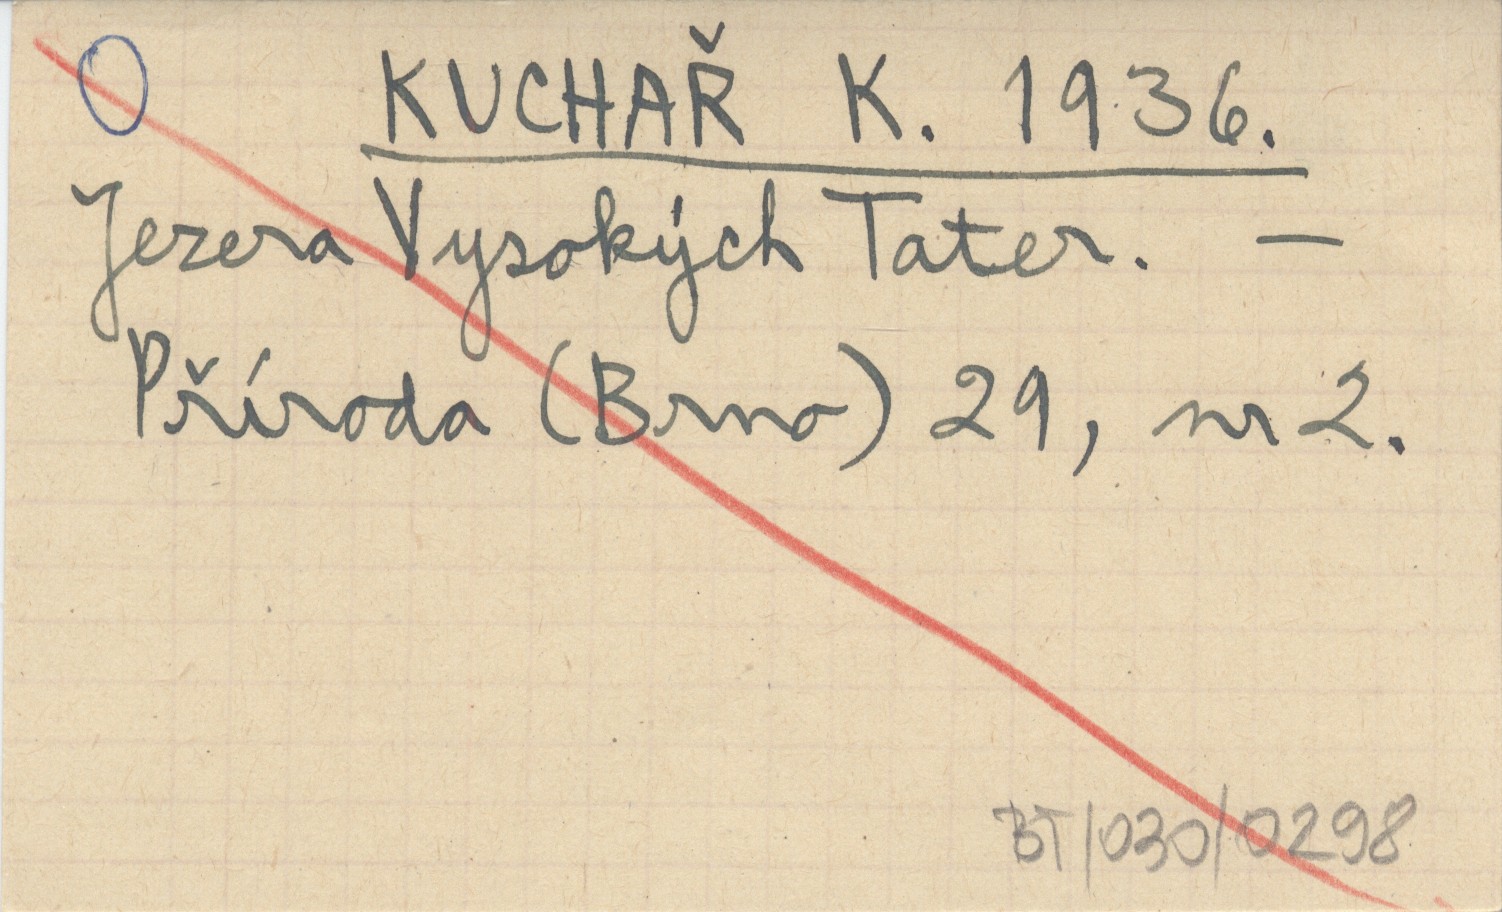 KUCHAŘ K. 1936.
Jezera Vysokých Tater. —
Příroda (Brno) 29, nr 2.
BT/030/0298